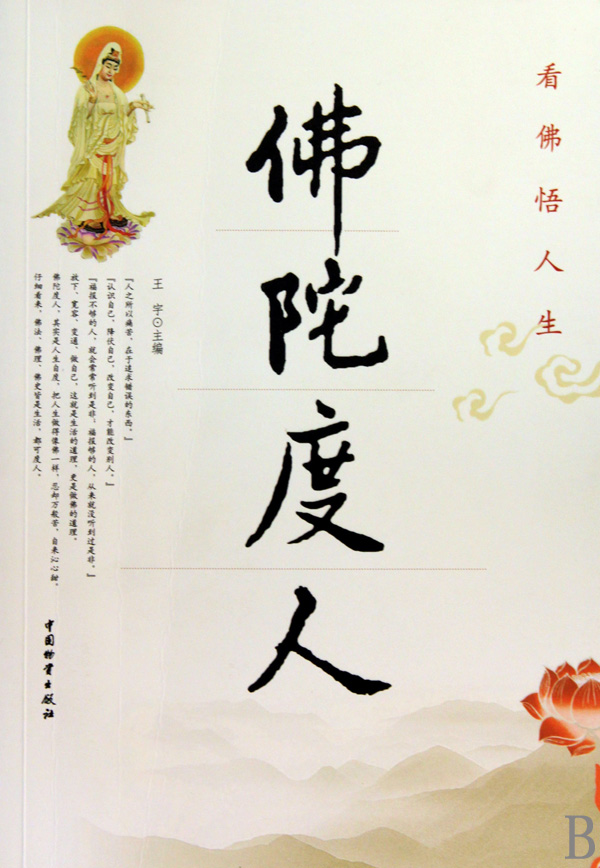 看佛悟人生
佛陀度人
王宇⊙主编
『人之所以痛苦，在于追求错误的东西。』
『认识自己，降伏自己，改变自己，才能改变别人。』
『福报不够的人，就会常常听到是非；福报够的人，从来就没听到过是非。』
放下、宽容、变通、做自己，这就是生活的道理，更是做佛的道理。
佛陀度人，其实是人生自度，把人生做得像佛一样，忍却万般苦，自来沁心甜。
仔细看来，佛法、佛理、佛史皆是生活，都可度人。
中国物资出版社
B